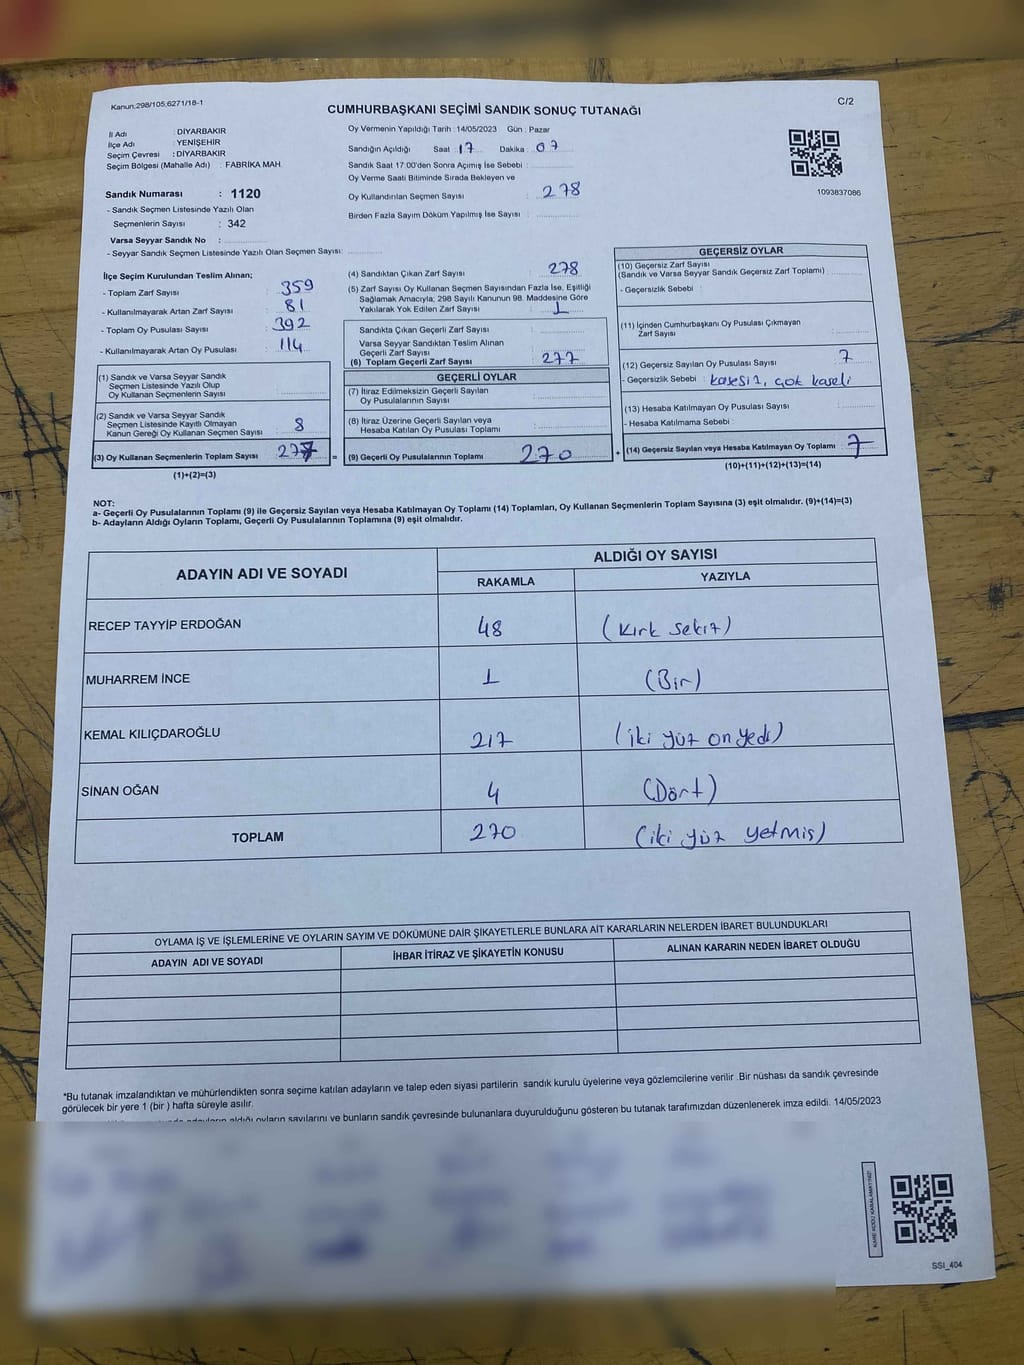 Kanun;298/105,6271/18-1
CUMHURBAŞKANI SEÇİMİ SANDIK SONUÇ TUTANAĞI
C/2
İl Adı : DİYARBAKIR
İlçe Adı : YENİŞEHİR
Seçim Çevresi : DİYARBAKIR
Seçim Bölgesi (Mahalle Adı) : FABRİKA MAH.
Sandık Numarası : 1120
- Sandık Seçmen Listesinde Yazılı Olan
Seçmenlerin Sayısı : 342
Varsa Seyyar Sandık No :
- Seyyar Sandık Seçmen Listesinde Yazılı Olan Seçmen Sayısı:
Oy Vermenin Yapıldığı Tarih : 14/05/2023 Gün : Pazar
Sandığın Açıldığı Saat 17 Dakika : 07
Sandık Saat 17:00'den Sonra Açılmış İse Sebebi :
Oy Verme Saati Bitiminde Sırada Bekleyen ve
Oy Kullandırılan Seçmen Sayısı : 278
Birden Fazla Sayım Döküm Yapılmış İse Sayısı :
1093837086
İlçe Seçim Kurulundan Teslim Alınan;
- Toplam Zarf Sayısı : 359
- Kullanılmayarak Artan Zarf Sayısı : 81
- Toplam Oy Pusulası Sayısı : 392
- Kullanılmayarak Artan Oy Pusulası : 114
(1) Sandık ve Varsa Seyyar Sandık
Seçmen Listesinde Yazılı Olup
Oy Kullanan Seçmenlerin Sayısı :
(2) Sandık ve Varsa Seyyar Sandık
Seçmen Listesinde Kayıtlı Olmayan
Kanun Gereği Oy Kullanan Seçmen Sayısı : 8
(3) Oy Kullanan Seçmenlerin Toplam Sayısı : 277 =
(1)+(2)=(3)
(4) Sandıktan Çıkan Zarf Sayısı : 278
(5) Zarf Sayısı Oy Kullanan Seçmen Sayısından Fazla İse, Eşitliği
Sağlamak Amacıyla, 298 Sayılı Kanunun 98. Maddesine Göre
Yakılarak Yok Edilen Zarf Sayısı : 1
Sandıkta Çıkan Geçerli Zarf Sayısı :
Varsa Seyyar Sandıktan Teslim Alınan
Geçerli Zarf Sayısı :
(6) Toplam Geçerli Zarf Sayısı : 277
GEÇERLİ OYLAR
(7) İtiraz Edilmeksizin Geçerli Sayılan
Oy Pusulalarının Sayısı :
(8) İtiraz Üzerine Geçerli Sayılan veya
Hesaba Katılan Oy Pusulası Toplamı :
(9) Geçerli Oy Pusulalarının Toplamı : 270 +
GEÇERSİZ OYLAR
(10) Geçersiz Zarf Sayısı
(Sandık ve Varsa Seyyar Sandık Geçersiz Zarf Toplamı)
- Geçersizlik Sebebi :
(11) İçinden Cumhurbaşkanı Oy Pusulası Çıkmayan
Zarf Sayısı :
(12) Geçersiz Sayılan Oy Pusulası Sayısı : 7
- Geçersizlik Sebebi : kasesiz, çok kaseli
(13) Hesaba Katılmayan Oy Pusulası Sayısı :
- Hesaba Katılmama Sebebi :
(14) Geçersiz Sayılan veya Hesaba Katılmayan Oy Toplamı : 7
(10)+(11)+(12)+(13)=(14)
NOT:
a- Geçerli Oy Pusulalarının Toplamı (9) ile Geçersiz Sayılan veya Hesaba Katılmayan Oy Toplamı (14) Toplamları, Oy Kullanan Seçmenlerin Toplam Sayısına (3) eşit olmalıdır. (9)+(14)=(3)
b- Adayların Aldığı Oyların Toplamı, Geçerli Oy Pusulalarının Toplamına (9) eşit olmalıdır.
ADAYIN ADI VE SOYADI
ALDIĞI OY SAYISI
RAKAMLA YAZIYLA
RECEP TAYYİP ERDOĞAN 48 (Kırk sekiz)
MUHARREM İNCE 1 (Bir)
KEMAL KILIÇDAROĞLU 217 (iki yüz on yedi)
SİNAN OĞAN 4 (Dört)
TOPLAM 270 (iki yüz yetmis)
OYLAMA İŞ VE İŞLEMLERİNE VE OYLARIN SAYIM VE DÖKÜMÜNE DAİR ŞİKAYETLERLE BUNLARA AİT KARARLARIN NELERDEN İBARET BULUNDUKLARI
ADAYIN ADI VE SOYADI İHBAR İTİRAZ VE ŞİKAYETİN KONUSU ALINAN KARARIN NEDEN İBARET OLDUĞU
*Bu tutanak imzalandıktan ve mühürlendikten sonra seçime katılan adayların ve talep eden siyasi partilerin sandık kurulu üyelerine veya gözlemcilerine verilir .Bir nüshası da sandık çevresinde
görülecek bir yere 1 (bir ) hafta süreyle asılır.
adayların aldığı oyların sayılarını ve bunların sandık çevresinde bulunanlara duyurulduğunu gösteren bu tutanak tarafımızdan düzenlenerek imza edildi. 14/05/2023
SSI_404